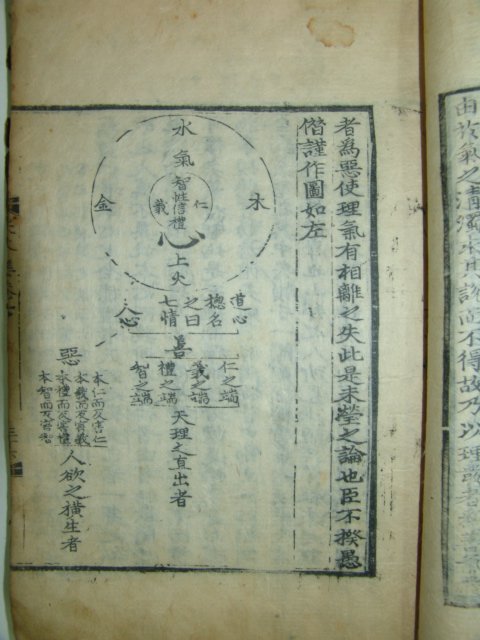 由故氣之清濁求其說而不得故乃以理發者
者為惡使理氣有相離之失此是未瑩之論也臣不揆愚
僭謹作圖如左
水
氣
木
金
智
性
信
禮
仁
義
心
上火
道心
摠名
之曰
七情
人心
善
仁之端
義之端
禮之端
智之端
天理之直出者
惡
本仁而反害仁
本義而反害義
本禮而反害禮
本智而反害智
人欲之橫生者